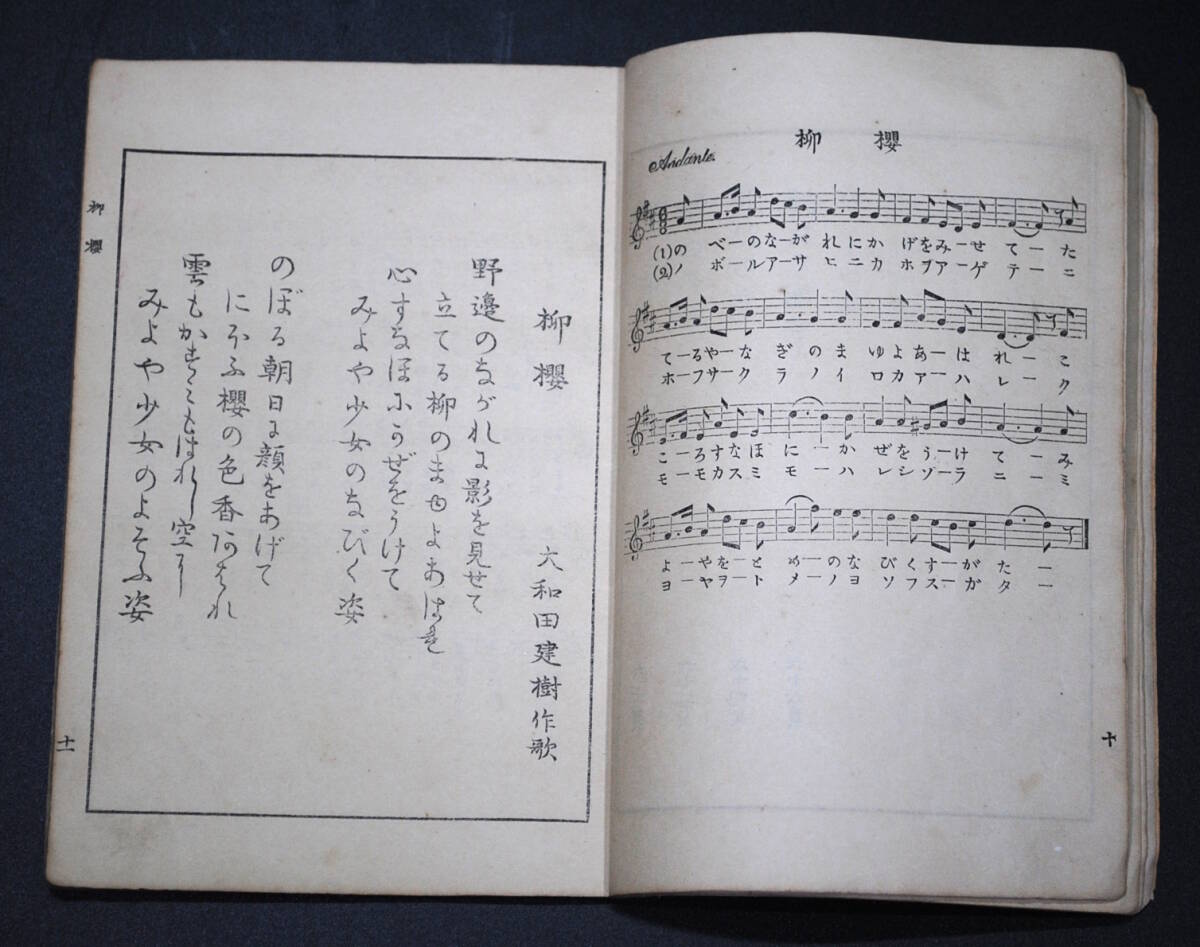 柳 櫻
Andante.
(1)の べーのなーが れにか げをみーせ てーた
(2)ノ ボールアーサ ヒニカ ホヲアーゲ テーニ
てーるやーな ぎのま ゆよあーは れーこ
ホーフサーク ラノイ ロカアーハ レーク
こーろすなほ にーか ぜをうーけ てーみ
モーモカスミ モーハ レシゾーラ ニーミ
よーやをーと めーのな びくすーが たー
ヨーヤヲート メーノヨ ソフスーガ ター
十
柳櫻
大和田建樹作歌
野邊のながれに影を見せて
立てる柳のまゆよあはれ
心すなほにかぜをうけて
みよや少女のなびく姿
のぼる朝日に顔をあげて
にほふ櫻の色香あはれ
雲もかすみもはれし空に
みよや少女のよそふ姿
柳櫻
十一